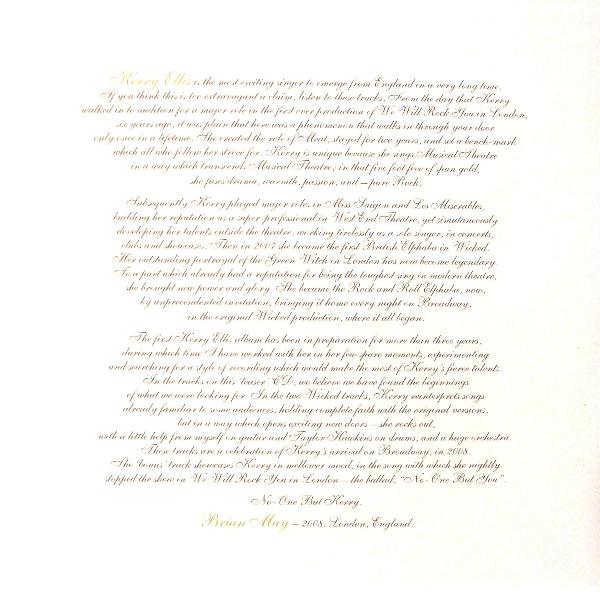 Kerry Ellis is the most exciting singer to emerge from England in a very long time.
If you think this is too extravagant a claim, listen to these tracks. From the day that Kerry
walked in to audition for a major role in the first ever production of We Will Rock You in London,
six years ago, it was plain that here was a phenomenon that walks in through your door
only once in a lifetime. She created the role of Meat, stayed for two years, and set a bench-mark
which all who follow her strive for. Kerry is unique because she sings Musical Theatre
in a way which transcends Musical Theatre, in that five foot five of spun gold,
she fuses drama, warmth, passion, and – pure Rock.
Subsequently Kerry played major roles in Miss Saigon and Les Miserables,
building her reputation as a super-professional in West End Theatre, yet simutaneously
developing her talents outside the theatre, working tirelessly as a solo singer, in concerts,
clubs and showcases. Then in 2007 she became the first British Elphaba in Wicked.
Her outstanding portrayal of the Green Witch in London has now become legendary.
To a part which already had a reputation for being the toughest sing in modern theatre,
she brought new power and glory. She became the Rock and Roll Elphaba, now,
by unprecendented invitation, bringing it home every night on Broadway,
in the original Wicked production, where it all began.
The first Kerry Ellis album has been in preparation for more than three years,
during which time I have worked with her in her few spare moments, experimenting
and searching for a style of recording which would make the most of Kerry's fierce talents.
In the tracks on this 'teaser' CD, we believe we have found the beginnings
of what we were looking for. In the two Wicked tracks, Kerry reinterprets songs
already familiar to some audiences, holding complete faith with the original versions,
but in a way which opens exciting new doors – she rocks out,
with a little help from myself on guitar and Taylor Hawkins on drums, and a huge orchestra.
These tracks are a celebration of Kerry's arrival on Broadway, in 2008.
The 'bonus' track showcases Kerry in mellower mood, in the song with which she nightly
stopped the show in We Will Rock You in London – the ballad, "No-One But You".
No-One But Kerry.
Brian May – 2008. London, England.